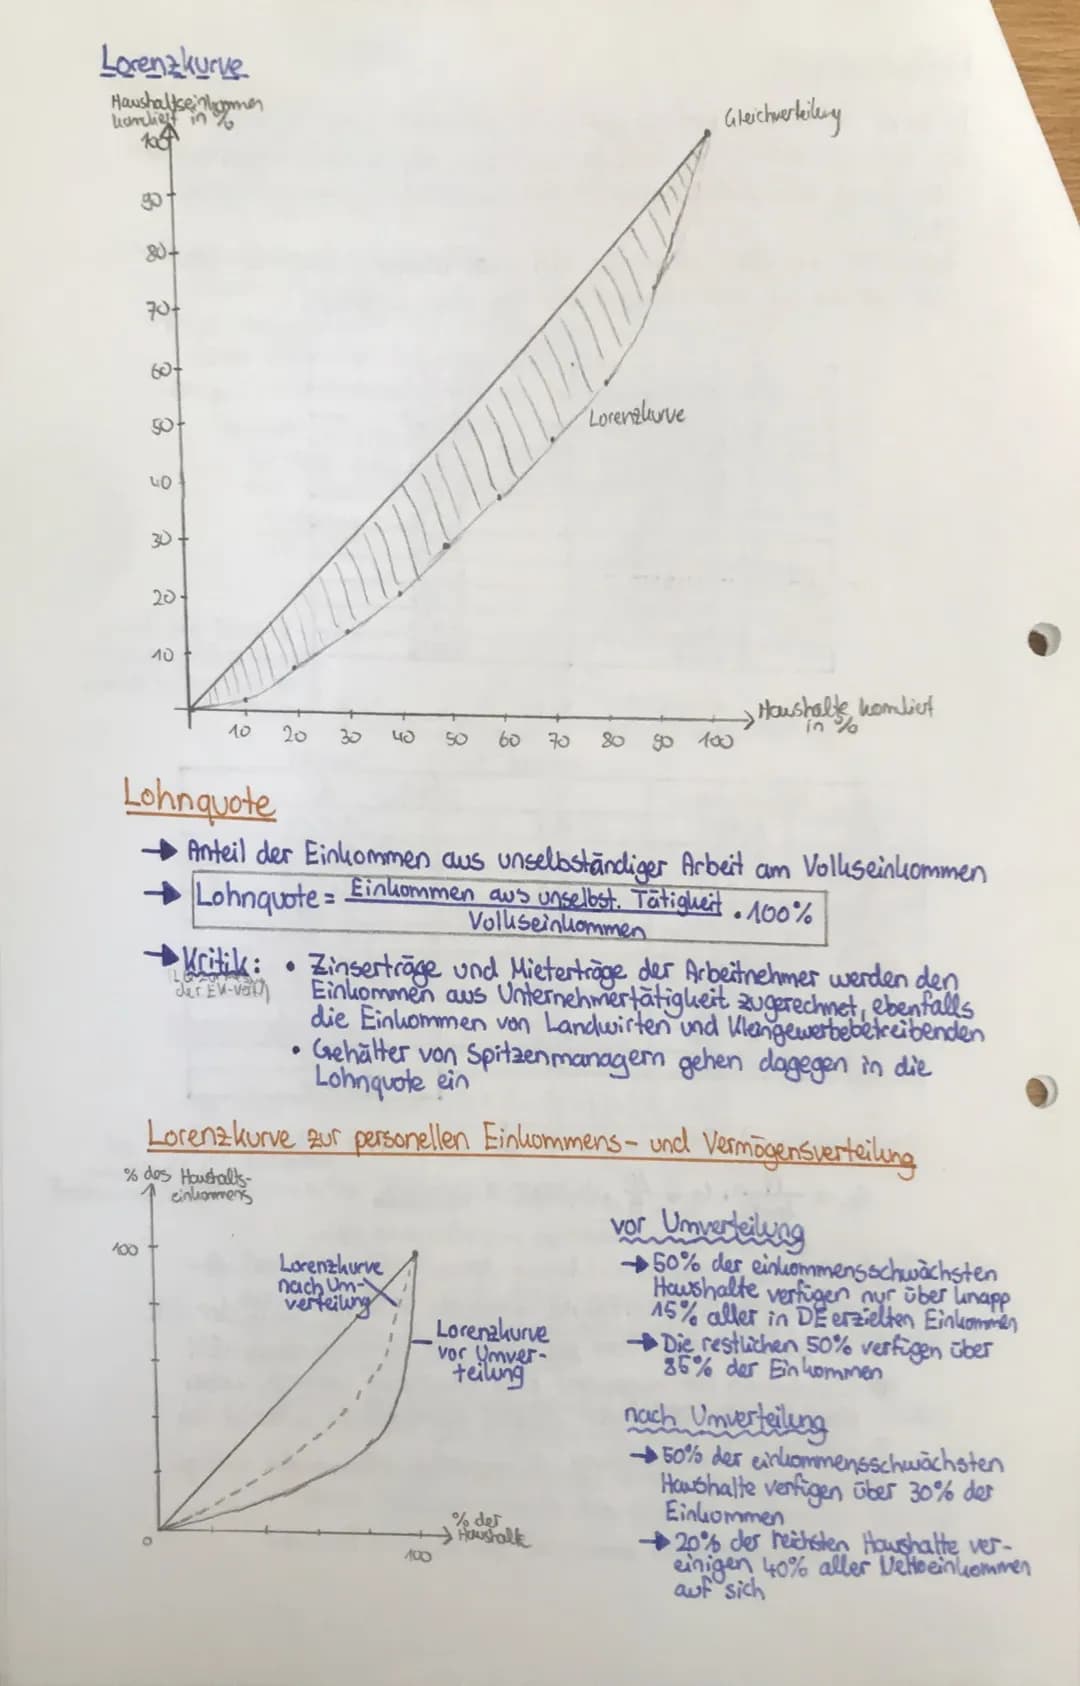 Lorenzkurve
Haushaltseinkommen
kumuliert in %
100
Gleichverteilung
90
80
70
60
50
Lorenzkurve
40
30
20
10
Haushalte kumuliert
in %
10 20 30 40 50 60 70 80 90 100
Lohnquote
→ Anteil der Einkommen aus unselbständiger Arbeit am Volkseinkommen
→ Lohnquote = Einkommen aus unselbst. Tätigkeit · 100%
Volkseinkommen
→ Kritik: • Zinserträge und Mieterträge der Arbeitnehmer werden den
der EK-
Einkommen aus Unternehmertätigkeit zugerechnet, ebenfalls
die Einkommen von Landwirten und Kleingewerbebetreibenden
• Gehälter von Spitzenmanagern gehen dagegen in die
Lohnquote ein
Lorenzkurve zur personellen Einkommens- und Vermögensverteilung
% des Haushalts-
einkommens
100
Lorenzkurve
nach Um-
verteilung
Lorenzkurve
vor Umver-
teilung
% der
Haushalte
0
100
vor Umverteilung
→ 50% der einkommensschwächsten
Haushalte verfügen nur über knapp
15% aller in DE erzielten Einkommen
→ Die restlichen 50% verfügen über
85% der Einkommen
nach Umverteilung
→ 50% der einkommensschwächsten
Haushalte verfügen über 30% der
Einkommen
→ 20% der reichsten Haushalte ver-
einigen 40% aller Nettoeinkommen
auf sich